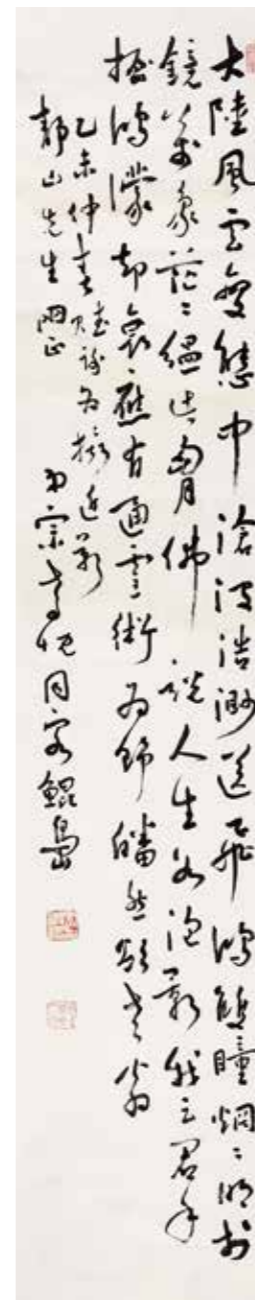 大陸風雲變態中滄波浩渺送飛鴻雙瞳炯炯明於
鏡萬象茫茫縕此胸佛說人生如泡影我云君手
握鴻濛却衰應有通靈術為皤然老翁
乙未仲春賦謝為攝近影
靜山先生正 弟宗孝忱同客鯤島